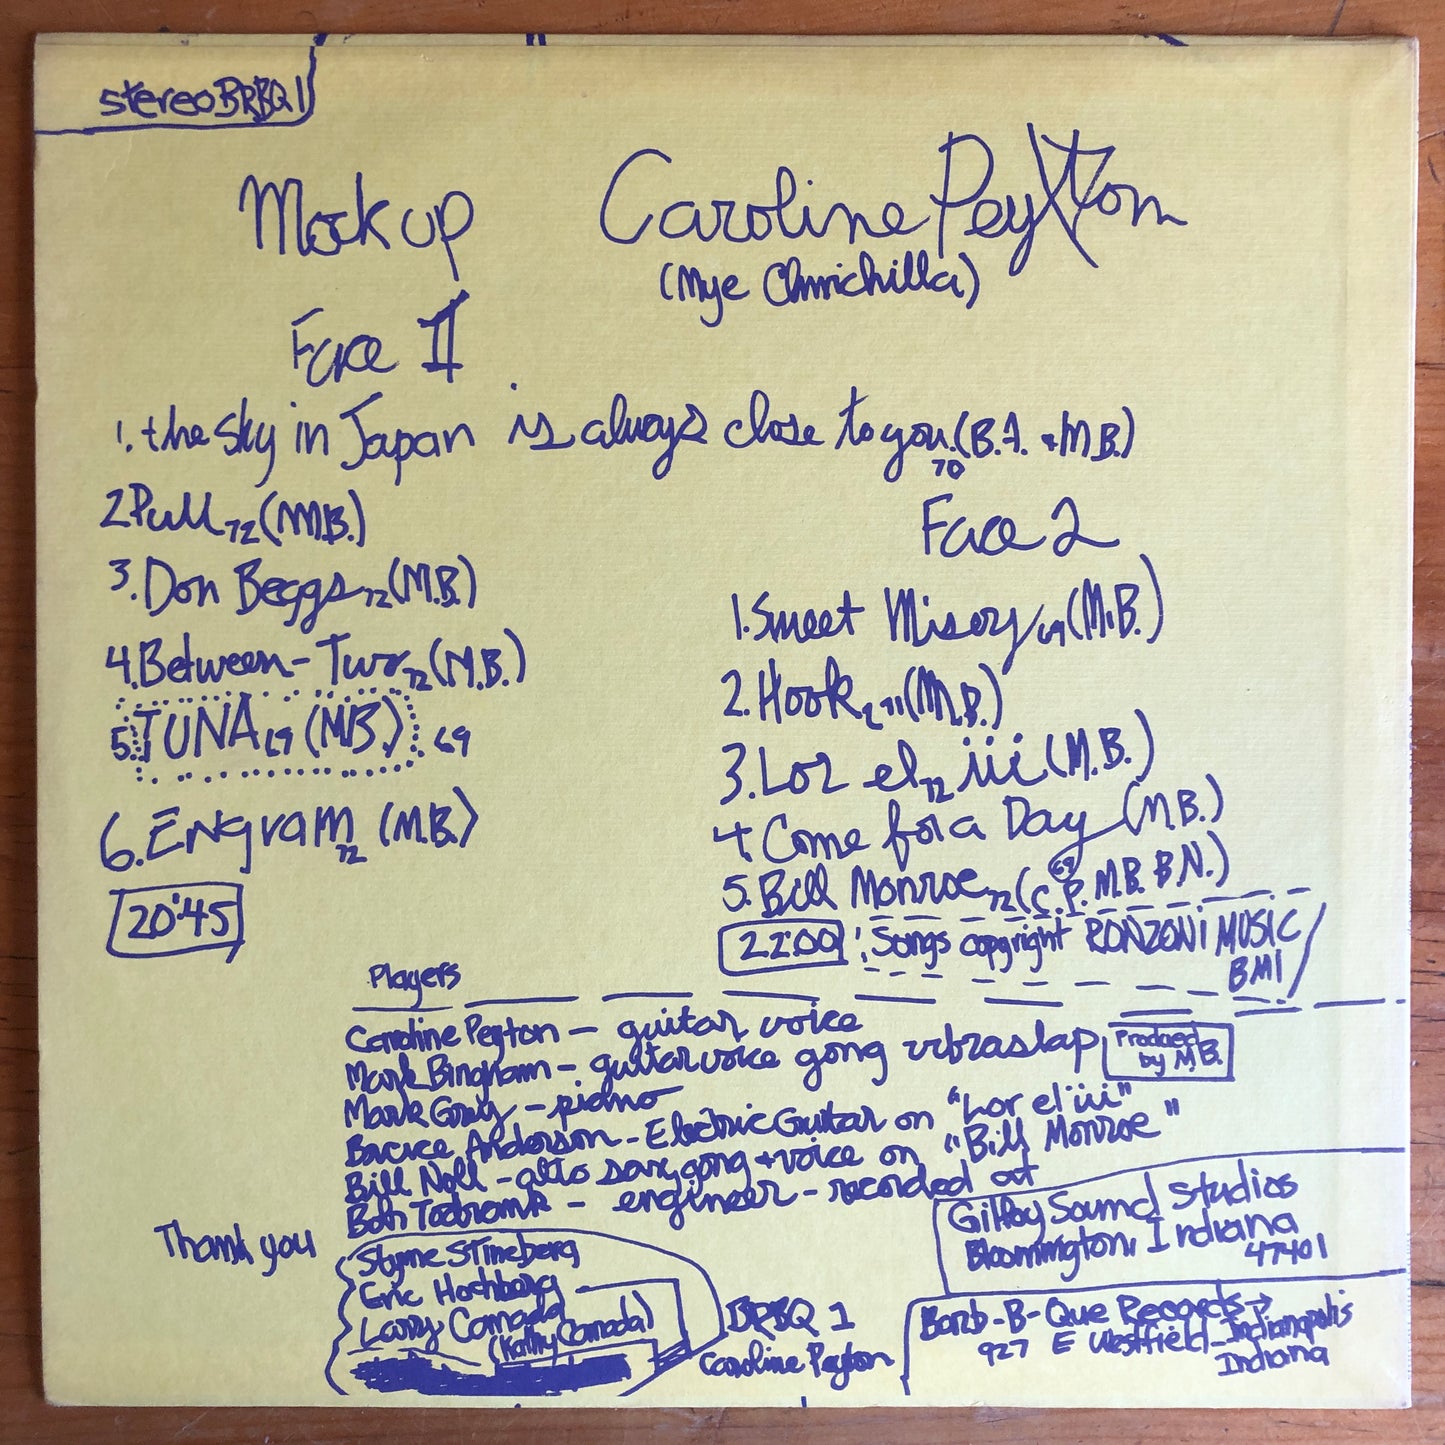 stereo BRBQ 1
Mock up
Caroline Peyton
(Mye Chinichilla)
Face II
1. the sky in Japan is always close to you. 70 (B.A. + M.B.)
2 Pull 72 (M.B.)
3. Don Beggs 72 (M.B.)
4. Between-Two 72 (M.B.)
5. TUNA 69 (M.B.) 69
6. Engram 72 (M.B.)
20:45
Face 2
1. Sweet Misery 69 (M.B.)
2. Hook 71 (M.B.)
3. Lor el iii 72 (M.B.)
4 Come for a Day (M.B.)
5. Bill Monroe 72 (C.P. M.B. B.N.)
69
22:00
Songs copyright RONZONI MUSIC
BMI
Players
Caroline Peyton - guitar voice
Mark Bingham - guitar voice gong vibraslap
Produced
by M.B.
Mark Gray - piano
Bruce Anderson - Electric Guitar on "Lor el iii"
Bill Noll - alto sax, gong + voice on "Bill Monroe"
Bob Todrank - engineer - recorded at
Gilfoy Sound Studios
Bloomington, Indiana
47401
Thank you
Styme Stineberg
Eric Hochberg
Larry Canada
(Kathy Canada)
BRBQ 1
Caroline Peyton
Barb-B-Que Records→
927 E Westfield Indianapolis
Indiana